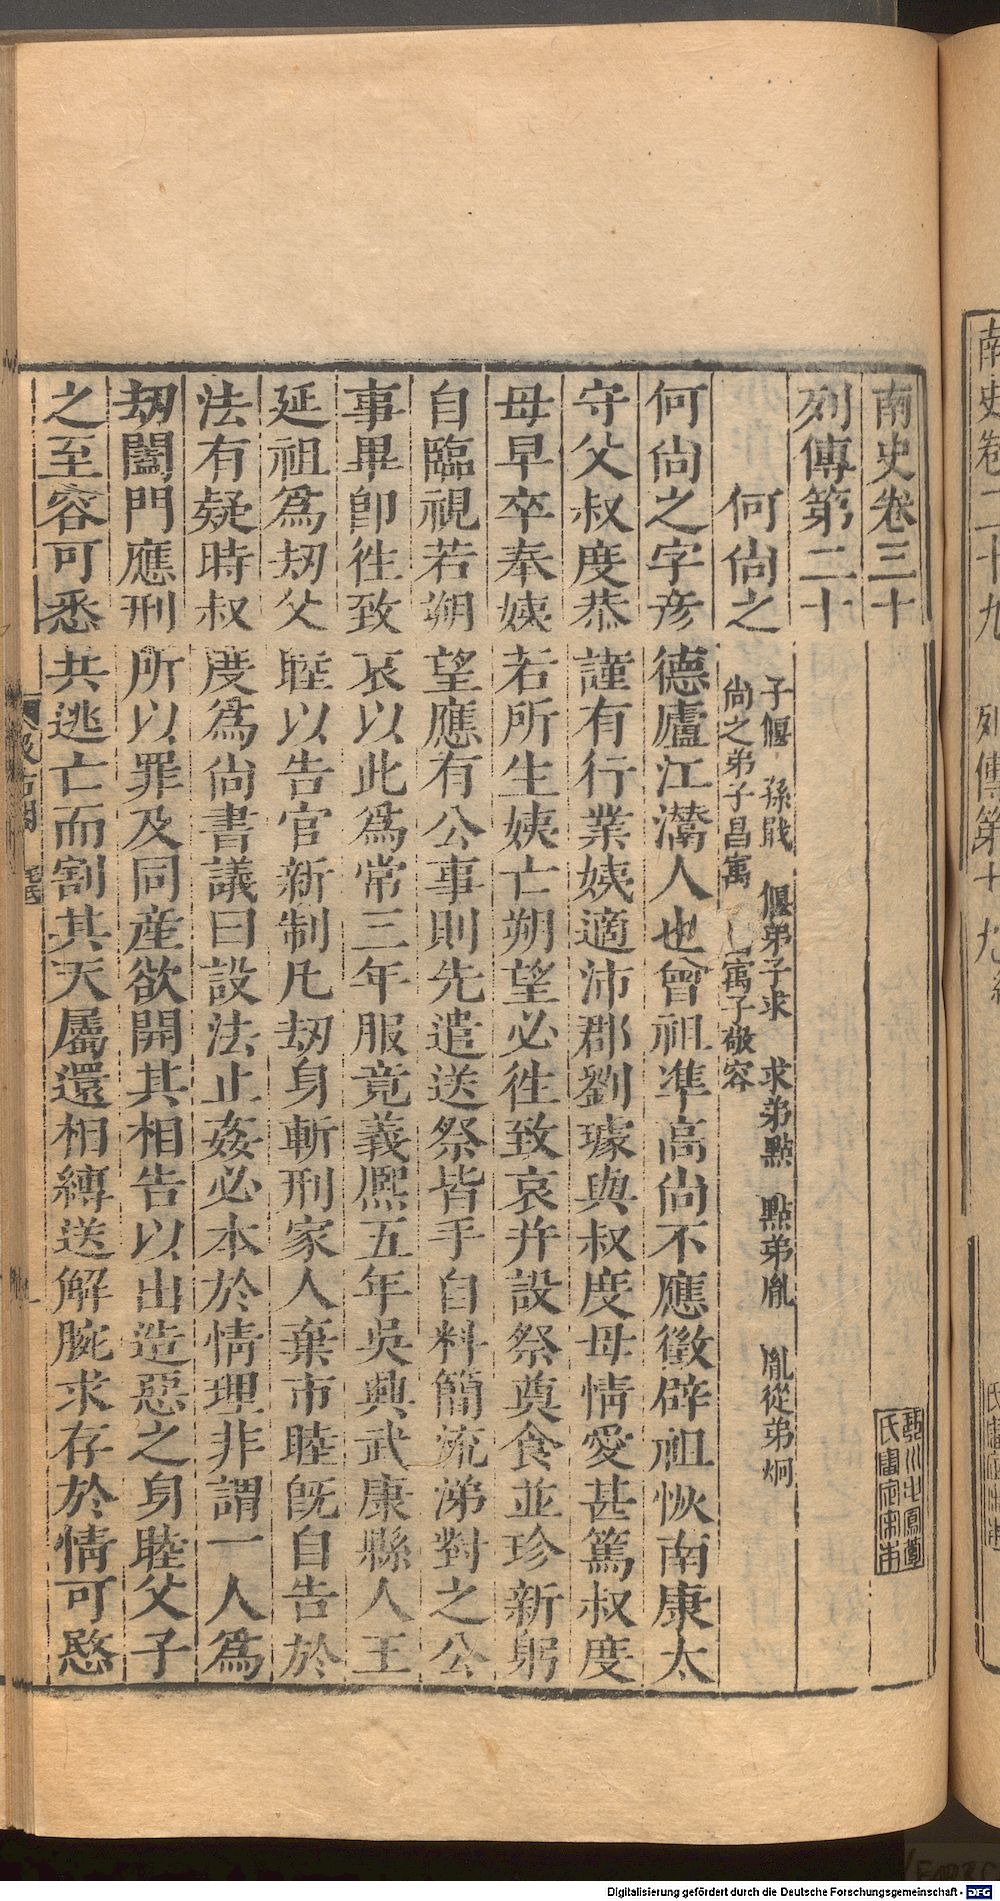 南史卷三十
列傳第二十
何尙之
子偃 孫戢 偃弟子求 求弟點 點弟胤 胤從弟炯
尙之弟子昌㝢 㝢子敬容
何尙之字彥德廬江灊人也曾祖準高尙不應徵辟祖恢南康太
守父叔度恭謹有行業姨適沛郡劉璩與叔度母情愛甚篤叔度
母早卒奉姨若所生姨亡朔望必徃致哀幷設祭奠食並珍新躬
自臨視若朔望應有公事則先遣送祭皆手自料簡流涕對之公
事畢卽徃致哀以此爲常三年服竟義熙五年吳興武康縣人王
延祖爲刼父睦以告官新制凡刼身斬刑家人棄市睦旣自告於
法有疑時叔度爲尙書議曰設法止姦必本於情理非謂一人爲
刼闔門應刑所以罪及同產欲開其相告以出造惡之身睦父子
之至容可悉共逃亡而割其天屬還相縛送解腕求存於情可愍
南史卷二十九 列傳第十九
Digitalisierung gefördert durch die Deutsche Forschungsgemeinschaft - DFG